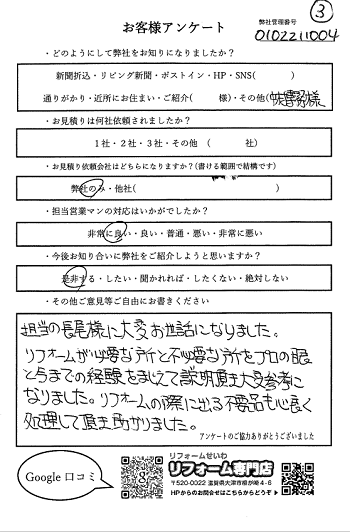 ③
お客様アンケート
弊社管理番号
0102211004
・どのようにして弊社をお知りになりましたか?
新聞折込・リビング新聞・ポストイン・HP・SNS( )
通りがかり・近所にお住まい・ご紹介( 様)・その他(
・お見積りは何社依頼されましたか?
1社・2社・3社・その他 ( 社)
・お見積り依頼会社はどちらになりますか?(書ける範囲で結構です)
弊社のみ・他社( )
・担当営業マンの対応はいかがでしたか?
非常に良い・良い・普通・悪い・非常に悪い
・今後お知り合いに弊社をご紹介しようと思いますか?
是非する・したい・聞かれれば・したくない・絶対しない
・その他ご意見等ご自由にお書きください
担当の長尾様に大変お世話になりました。
リフォームが必要な所と不必要な所をプロの眼
と今までの経験をまじえて説明頂き大変参考に
なりました。リフォームの際に出る不要品も心良く
処理して頂き助かりました。
アンケートのご協力ありがとうございました
Google 口コミ
リフォームせいわ
リフォーム専門店
〒520-0022 滋賀県大津市柳が崎4-6
HPからのお問合せはこちらからどうぞ▶